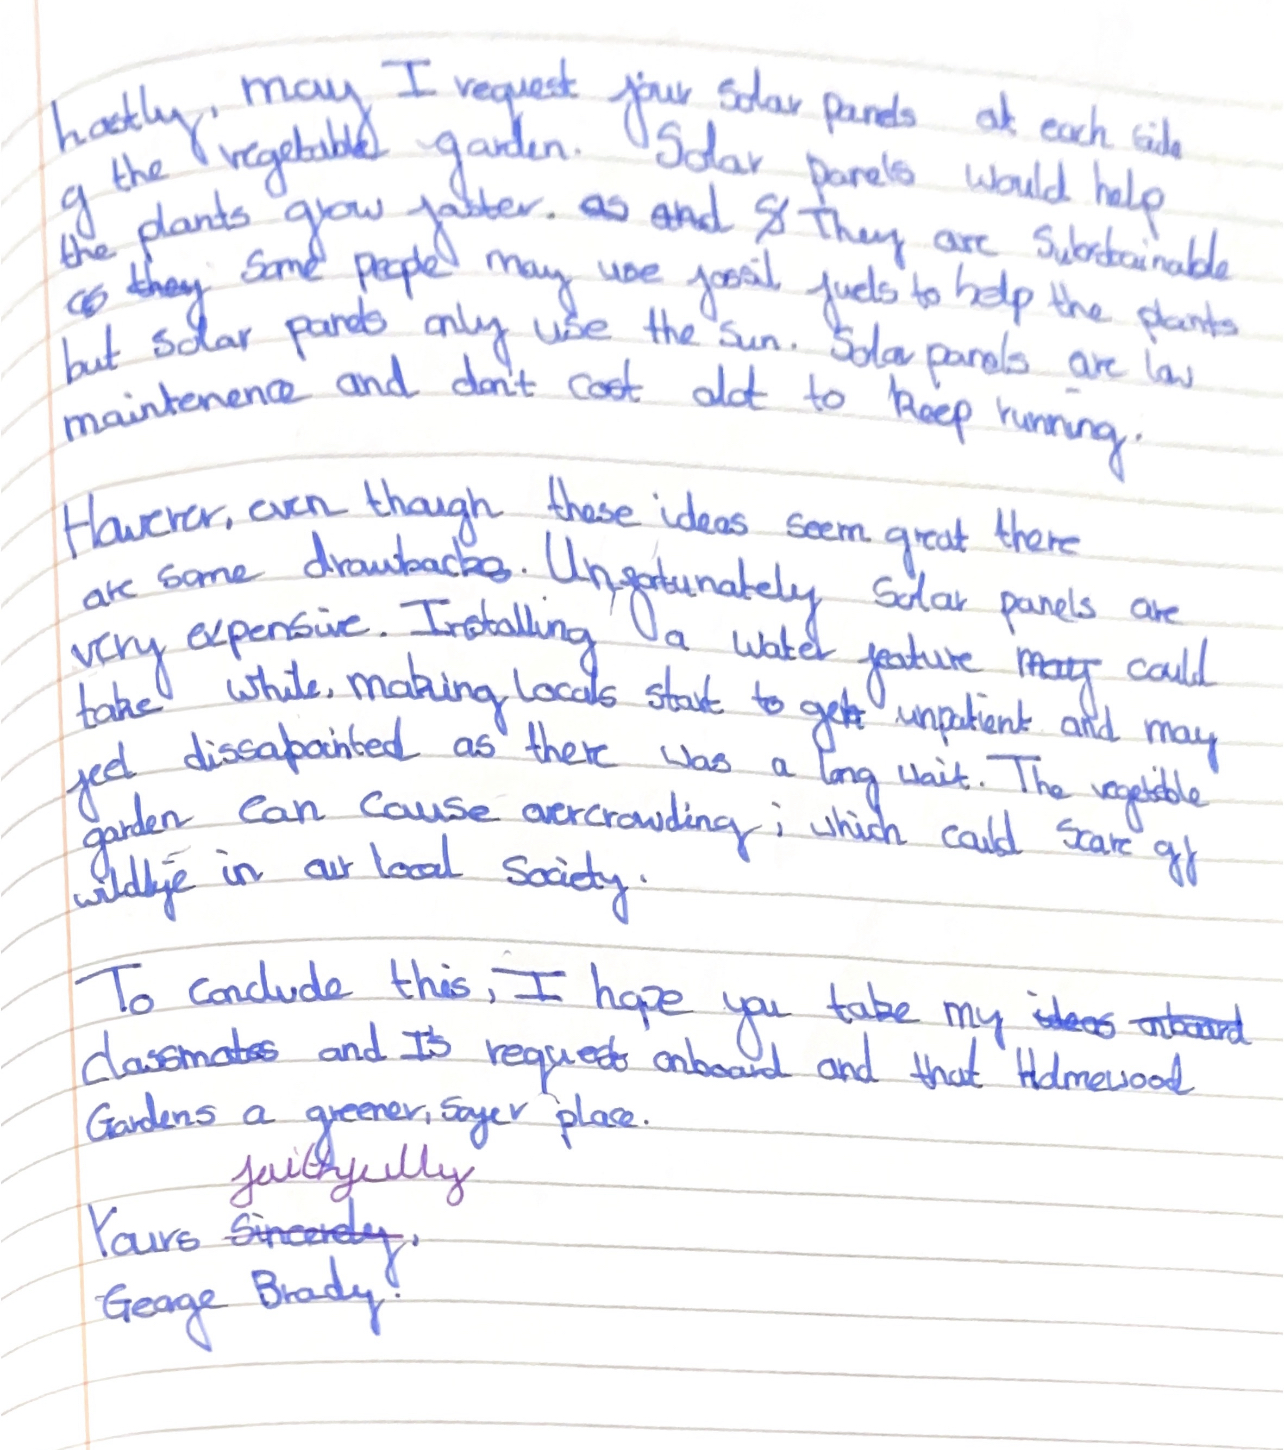 Lastly, may I request four solar panels at each side
of the vegetable garden. Solar panels would help
the plants grow faster. as and They are substainable
as they some people may use fossil fuels to help the plants
but solar panels only use the sun. Solar panels are low
maintenence and don't cost alot to keep running.
However, even though these ideas seem great there
are some drawbacks. Unfortunately solar panels are
very expensive. Installing a water feature may could
take while, making locals start to get unpatient and may
feel dissapointed as there was a long wait. The vegetible
garden can cause overcrowding; which could scare off
wildlife in our local society.
To conclude this, I hope you take my ideas onboard
classmates and I's requests onboard and that Holmewood
Gardens a greener, safer place.
faithfully
Yours Sincerely,
George Brady.